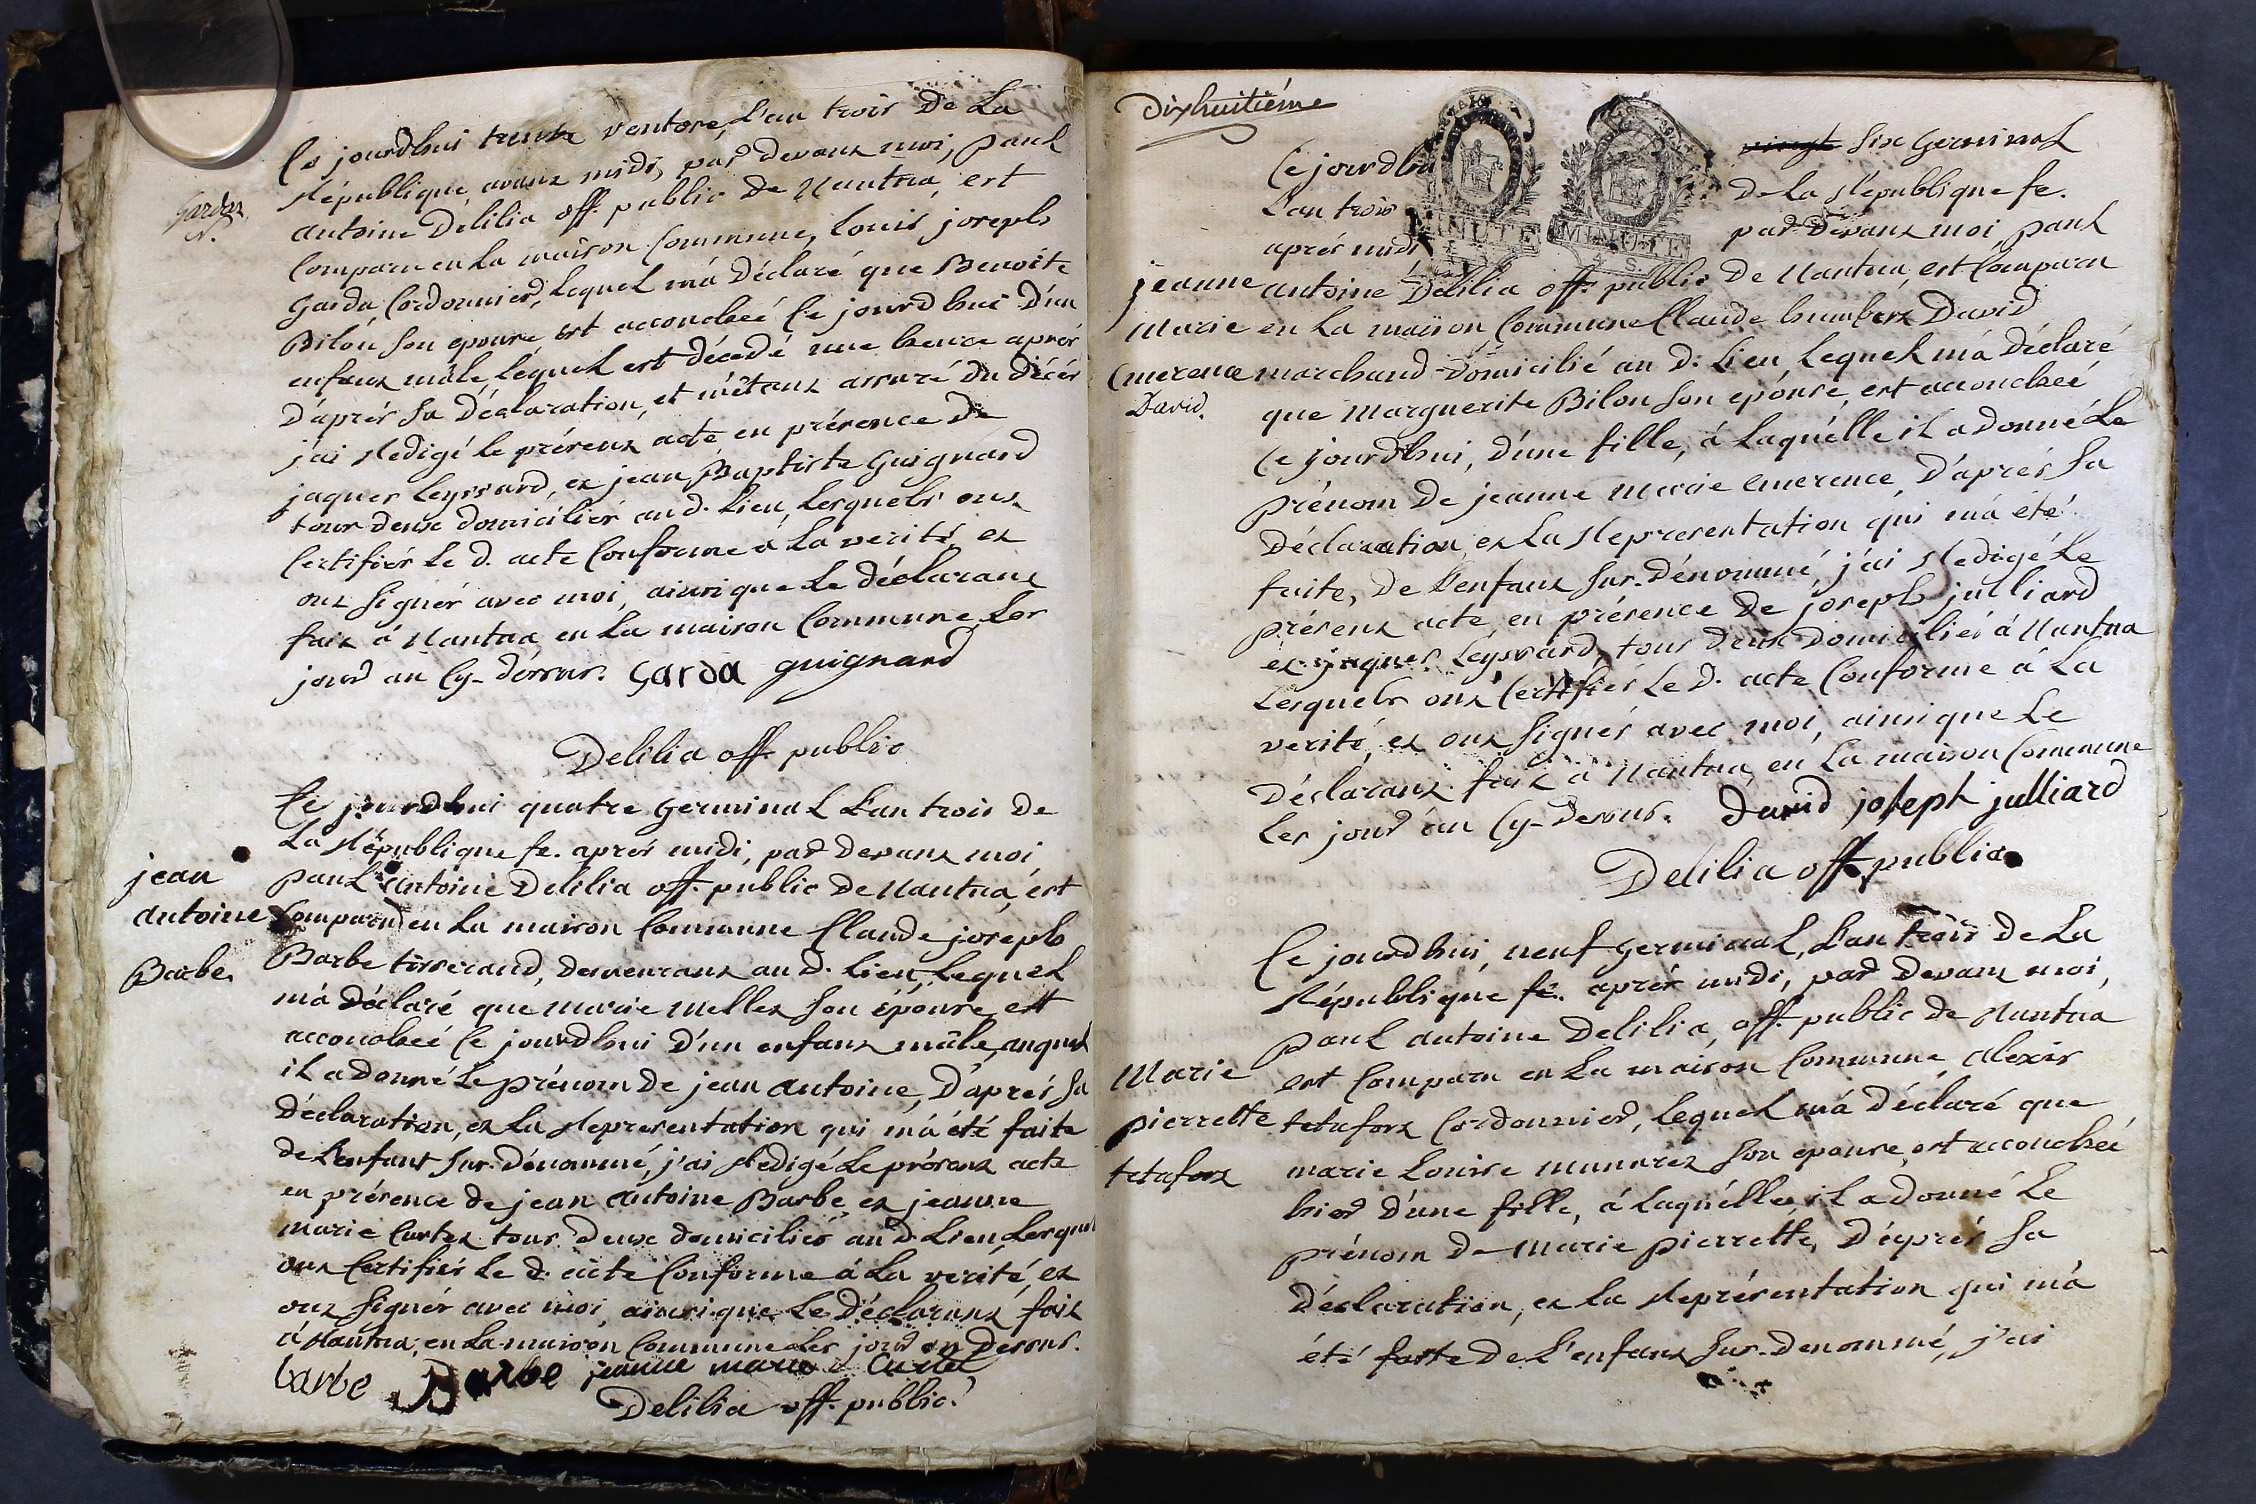 Ce jourdhui trente ventose, L'an trois De La
République, avant midi, par devant moi, paul
Garda
N.
antoine Delilia off. public De Nantua, est
Comparu en La maison Commune, Louis joseph
Garda Cordonnier, Lequel m'a Déclaré que Benoite
Bilon son epouse est accouchée Ce jourdhui D'un
enfant mâle, Lequel est décedé une heure après
D'après sa Déclaration, et m'étant assuré Du Décès
j'ai Redigé Le présent acte en présence De
jaques Leyssard, et jean Baptiste Guignard
tous deux domiciliés au d. Lieu, Lesquels ont
Certifiés Le d. acte Conforme à La verité, et
ont signés avec moi, ainsi que Le déclarant
fait à Nantua en La maison Commune Les
jour an Cy-dessus. Garda guignard
Delilia off. public
Ce jourdhui quatre Germinal L'an trois de
La République fe. après midi, par Devant moi
jean
antoine
Barbe
paul antoine Delilia off. public De Nantua, est
Comparu en La maison Commune Claude joseph
Barbe tisserand, demeurant au d. Lieu, Lequel
m'a Déclaré que marie mellez son épouse est
accouchée Ce jourdhui D'un enfant mâle, auquel
il a Donné Le prénom De jean antoine, D'après sa
déclaration, et La Representation qui m'a été faite
de L'enfant sus-Dénommé, j'ai Redigé Le présent acte
en présence de jean antoine Barbe, et jeanne
marie Curtet tous deux domiciliés au d. Lieu, Lesquel
ont Certifiés Le d. acte Conforme à La verité, et
ont signés avec moi, ainsi que Le Déclarant fait
à Nantua, en La maison Commune Les jour an Dessus.
barbe Barbe jeanne marie Curtet
Delilia off. public
Dixhuitiéme
Ce jourdhu vingt six Germinal
L'an trois De La République fe.
après midi par Devant moi, paul
MINUTE
MINUTE
jeanne
marie
Emerence
David
antoine Delilia off. public De Nantua, est Comparu
en La maison Commune Claude humbert David
marchand Domicilié au d. Lieu, Lequel m'a Déclaré
que marguerite Bilon son epouse, est accouchée
Ce jourdhui, D'une fille, à Laquelle il a donné Le
prénom De jeanne marie emerence, D'après sa
Déclaration, et La Representation qui m'a été
faite, De L'enfant sus-Dénommé, j'ai Redigé Le
présent acte en présence De joseph julliard
et jaques Leyssard, tous deux Domiciliés à Nantua
Lesquels ont Certifiés Le d. acte Conforme à La
verité, et ont signés avec moi, ainsi que Le
Déclarant fait à Nantua, en La maison Commune
Les jour an Cy-Dessus. David joseph julliard
Delilia off. public
Ce jourdhui, neuf Germinal, L'an trois De La
République fe. après midi, par Devant moi,
paul antoine Delilia, off. public de Nantua
Marie
pierrette
tetafort
est Comparu en La maison Commune, alexis
tetafort Cordonnier, Lequel m'a Déclaré que
marie Louise son epouse, est accouchée
hier D'une fille, à Laquelle il a Donné Le
prénom De Marie pierrette, D'après sa
Déclaration, et La Représentation qui m'a
été faite De L'enfant sus-denommé, j'ai